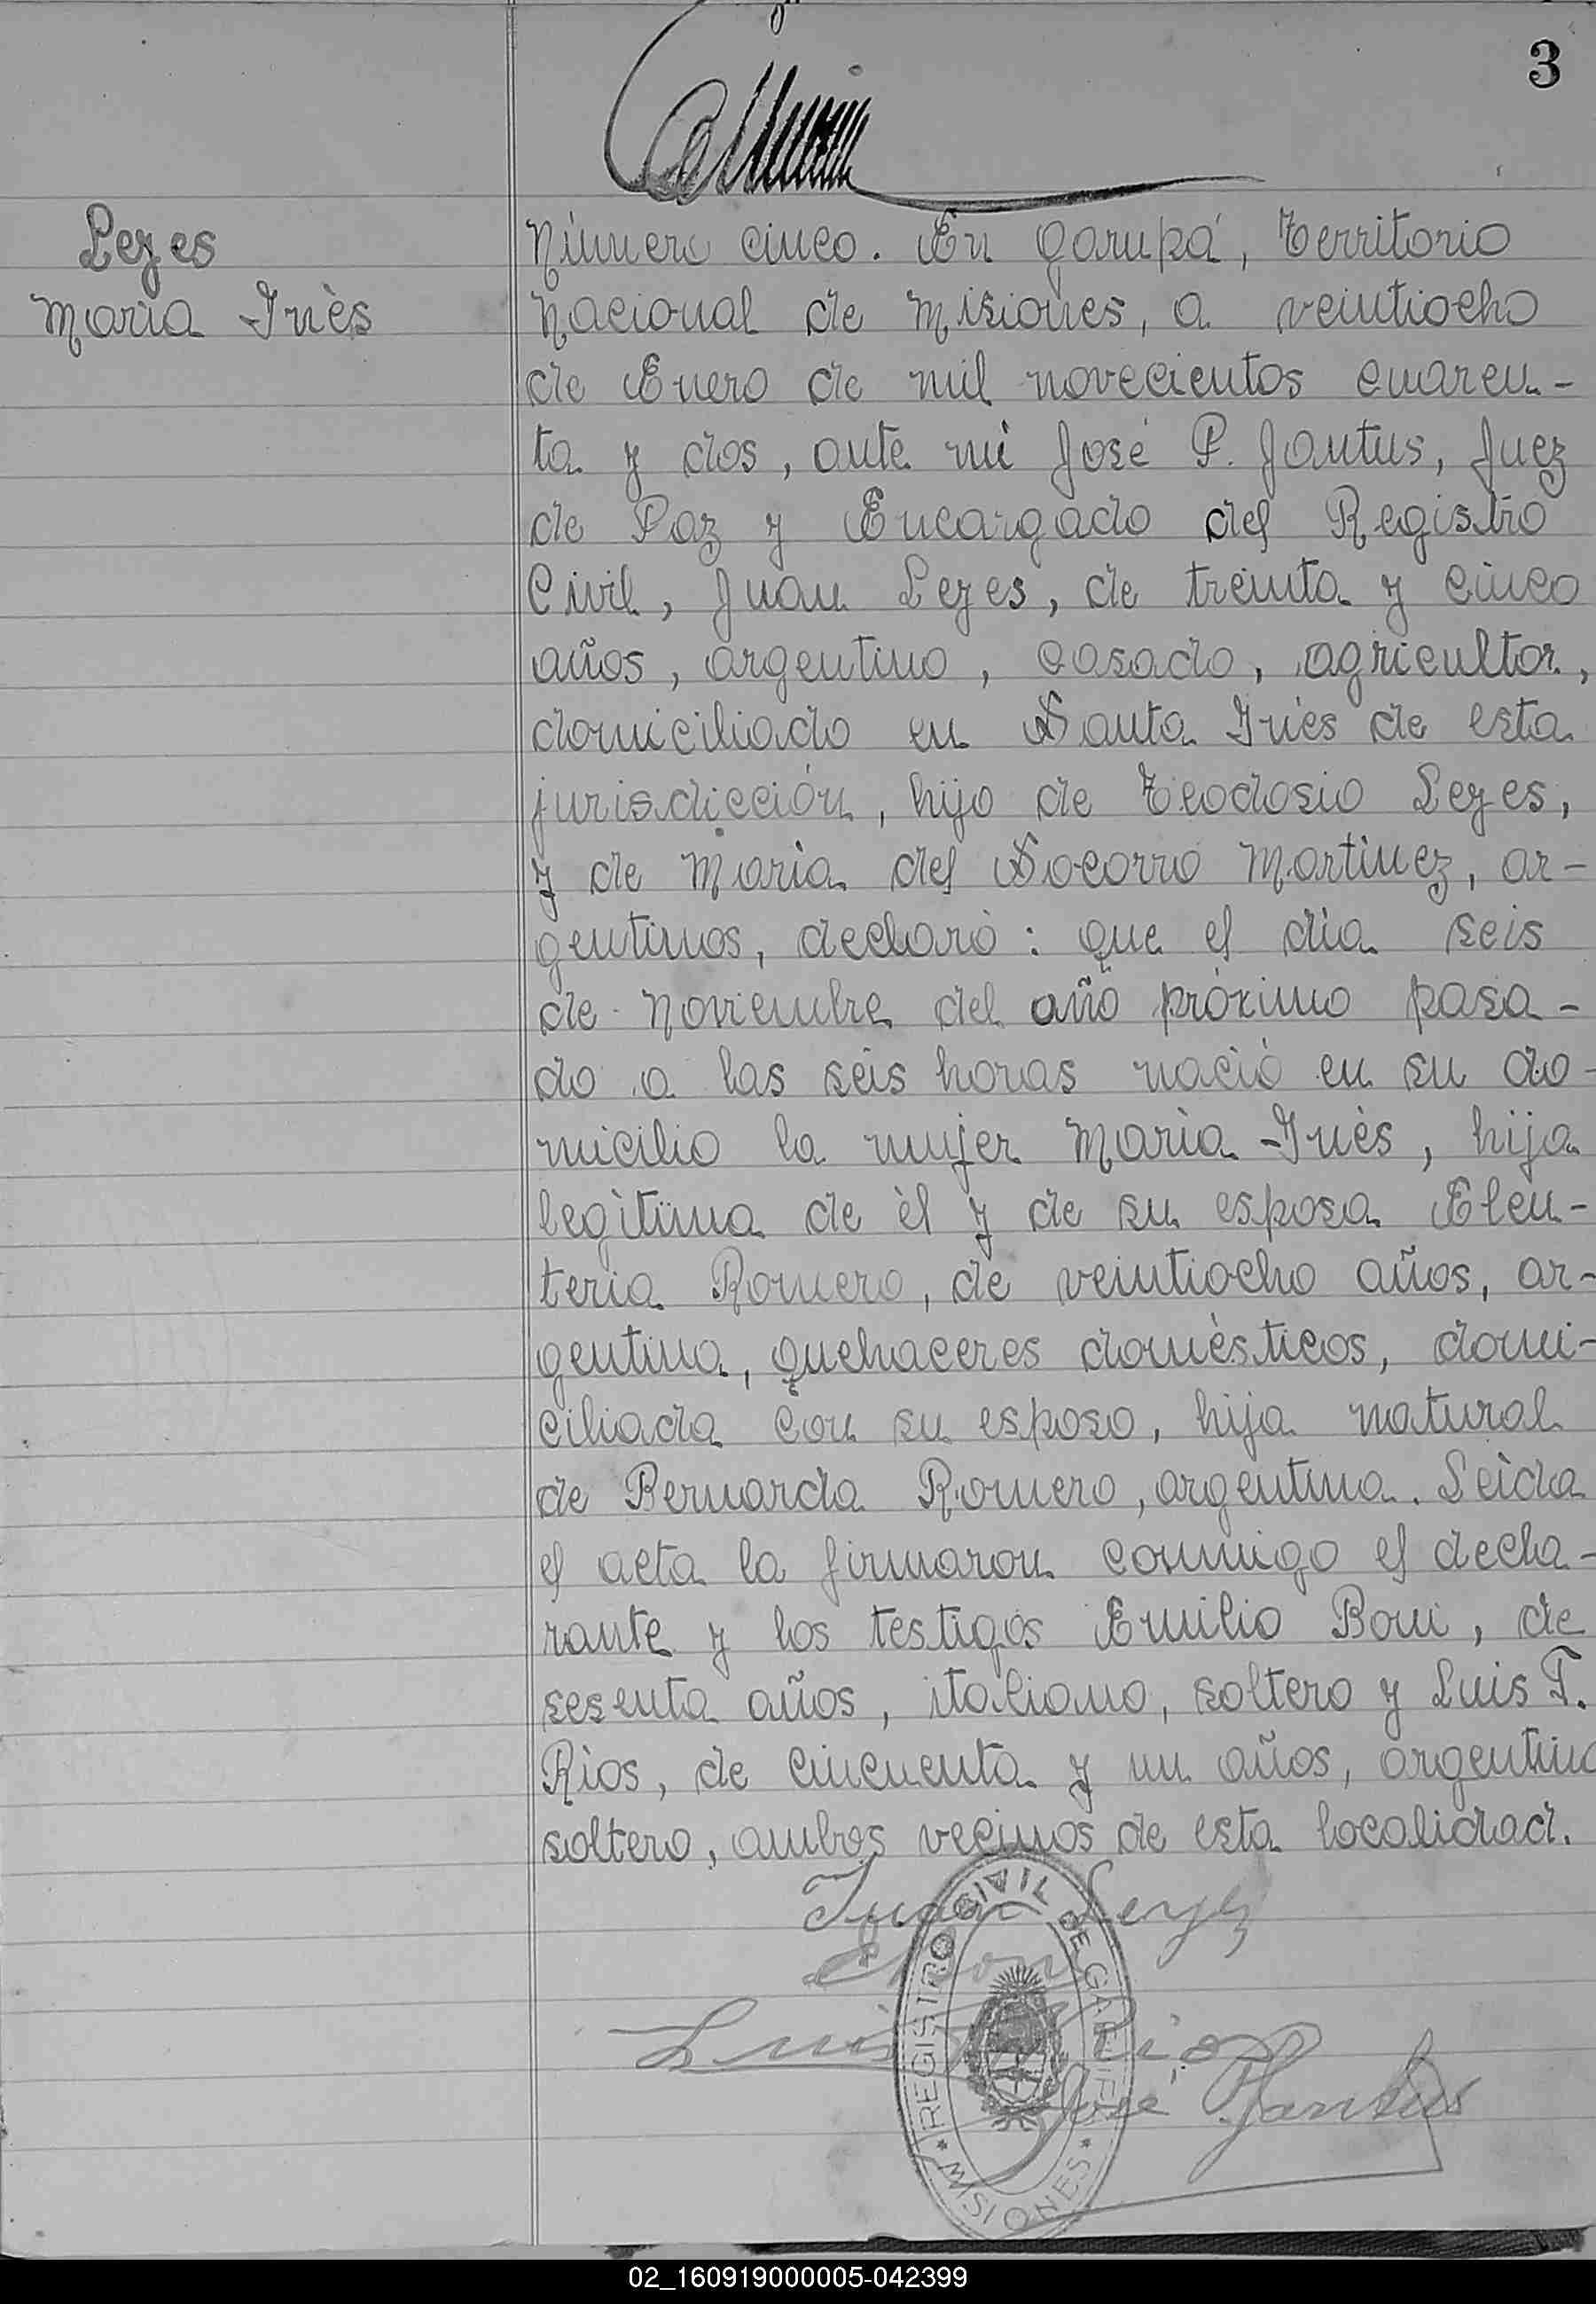 3
Leyes
Maria Inès
Número cinco. En Garupá, Territorio
Nacional de Misiones, a veintiocho
de Enero de mil novecientos cuaren-
ta y dos, ante mi José P. Jantus, Juez
de Paz y Encargado del Registro
Civil, Juan Leyes, de treinta y cinco
años, argentino, casado, agricultor,
domiciliado en Santa Inés de esta
jurisdicción, hijo de Teodosio Leyes,
y de Maria del Socorro Martinez, ar-
gentinos, declaró: que el dia seis
de Noviembre del año próximo pasa-
do a las seis horas nació en su do-
micilio la mujer Marìa Inès, hija
legìtima de èl y de su esposa Eleu-
teria Romero, de veintiocho años, ar-
gentina, quehaceres domèsticos, domi-
ciliada con su esposo, hija natural
de Bernarda Romero, argentina. Leìda
el acta la firmaron conmigo el decla-
rante y los testigos Emilio Boni, de
sesenta años, italiano, soltero y Luis T.
Rìos, de cincuenta y un años, argentino
soltero, ambos vecinos de esta localidad.
Juan Leyes
Luis Rios
José P Jantus
REGISTRO CIVIL DE GARUPA
* MISIONES *
02_160919000005-042399